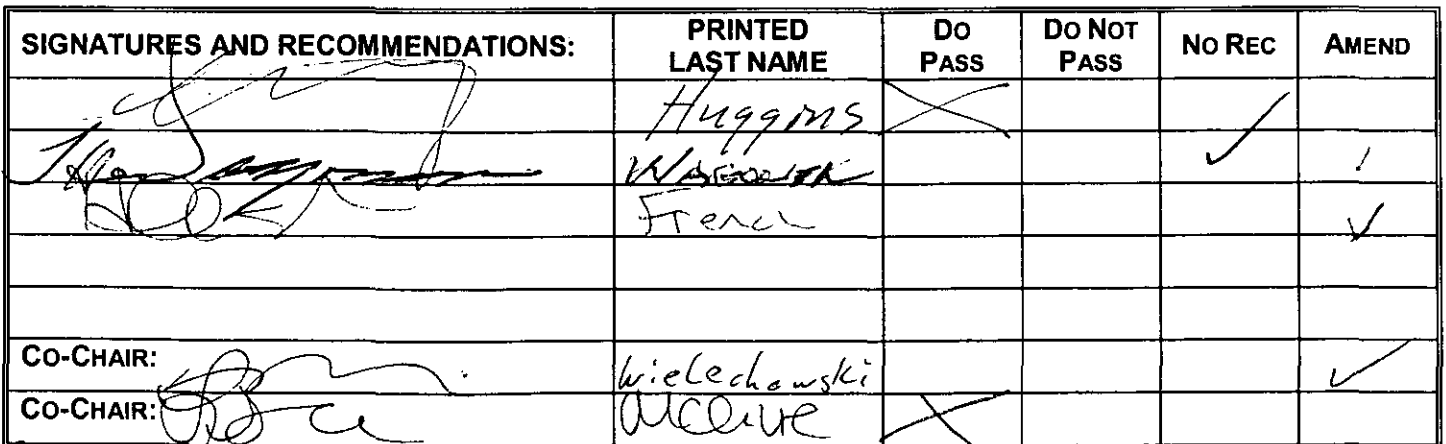 SIGNATURES AND RECOMMENDATIONS: PRINTED LAST NAME DO PASS DO NOT PASS NO REC AMEND
Huggins
French
CO-CHAIR: Wielechowski
CO-CHAIR: McGuire